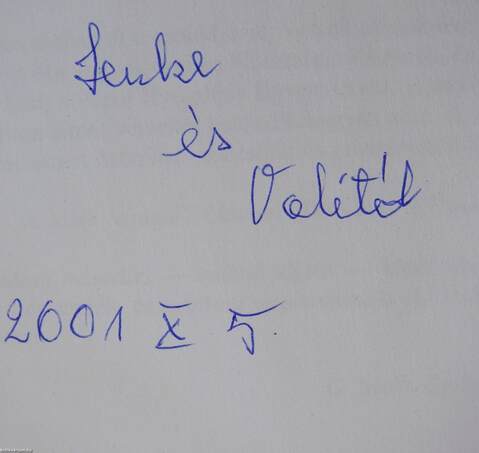 Jenke
és
Valitól
2001 X 5.